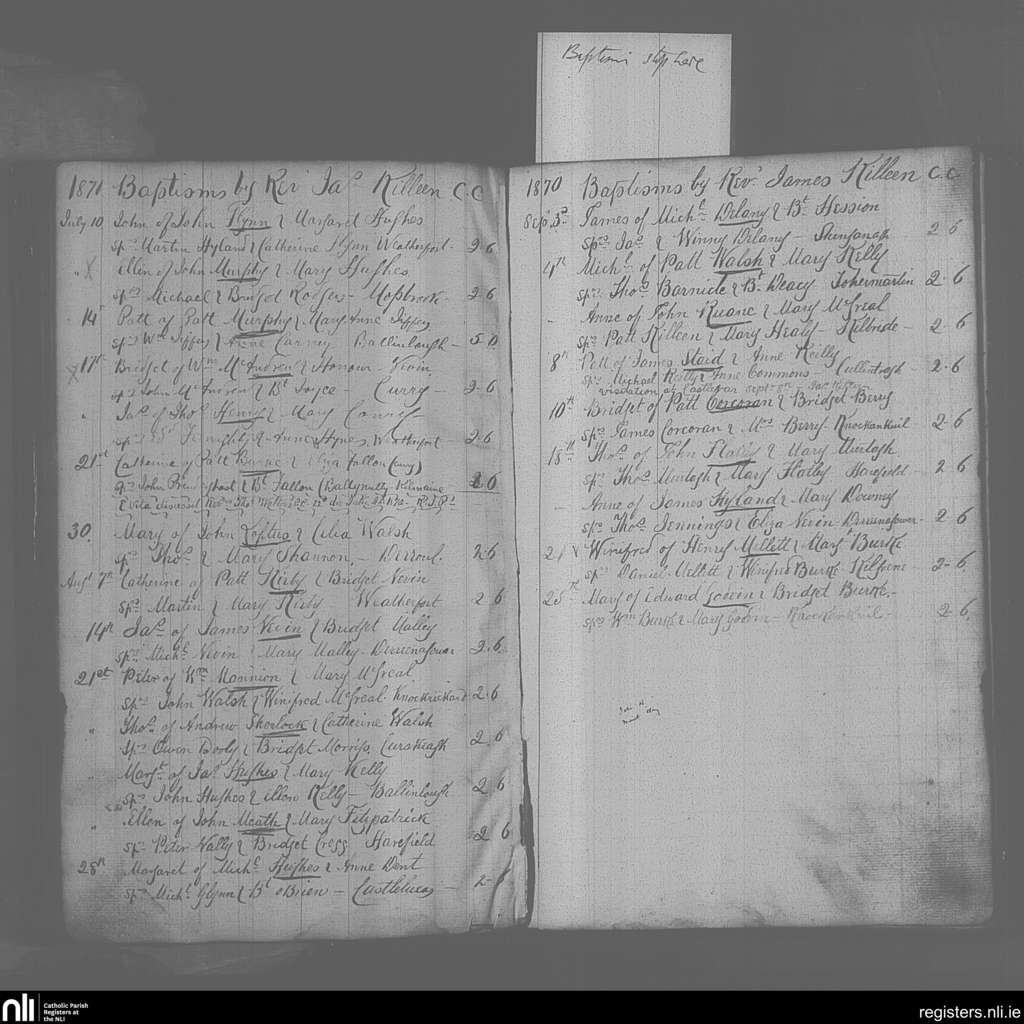 Baptisms stop here
1870 Baptisms by Rev.d Ja.s Killeen C.C
July 10 John of John Flynn & Margaret Hughes
sp.rs Martin Hyland & Catherine Flynn Weatherfort - 2-6
" X Ellen of John Murphy & Mary Hughes
sp.rs Michael & Bridget Rodgers - Mossbrook - 2-6
14 Patt of Patt Murphy & Mary Anne
sp.rs W.m & Anne Carney Ballinlough - 5 0
X 17th Bridget of W.m McAndrew & Honour Nevin
sp.rs John McAndrew & B.t Joyce - Curry - 2-6
" Ja.s of Tho.s Henry & Mary
sp.rs & Anne Hynes, Weatherfort - 2-6
21st Catherine of Patt & Eliza Fallon
sp.rs John & B.t Fallon (Ballynutty Kilmaine 2 6
30. Mary of John Loftus & Celia Walsh
sp.rs Tho.s & Mary Shannon - 2-6
Aug.t 7th Catherine of Patt Kirby & Bridget Nevin
sp.rs Martin & Mary Kirby Weatherfort 2 6
14th Ja.s of James Nevin & Bridget Malley
sp.rs Mich.l Nevin & Mary Malley - 2-6
21st Peter of W.m Mannion & Mary McGreal
sp.rs John Walsh & Winifred McGreal - Knockrickard 2-6
" Tho.s of Andrew Sherlock & Catherine Walsh
sp.rs Owen & Bridget Morriss, 2 6
" Marg.t of Ja.s Hughes & Mary Kelly
sp.rs John Hughes & Ellen Kelly - Ballinlough 2 6
" Ellen of John Meath & Mary Fitzpatrick
sp.rs Peter Nally & Bridget Cregg Harefield 2 6
28th Margaret of Mich.l Hughes & Anne Dent
sp.rs Mich.l Glynn & B.t O Brien - Castlelucas - 2-6
1870 Baptisms by Rev.d James Killeen C.C
Sept. 3d James of Mich.l Delany & B.t Hession
sp.rs Ja.s & Winny Delany - 2 6
4th Mich.l of Patt Walsh & Mary Kelly
sp.rs Tho.s Barnicle & B.t Deacy 2 6
- Anne of John Ruane & Mary McGreal
sp.rs Patt Killeen & Mary Healy - Kilbride - 2 6
8th Patt of James Staid & Anne Reilly
sp.rs Michael Reilly & Anne Commons - Cullentragh - 2-6
visitation at Castlebar Sept. 8th
10th Bridget of Patt Corcoran & Bridget Berry
sp.rs James Corcoran & M.rs Berry - Knockankuil 2-6
18th Tho.s of John Flatly & Mary Murtagh
sp.rs Tho.s Murtagh & Mary Flatly Harefield - 2 6
- Anne of James Hyland & Mary Downey
sp.rs Tho.s Jennings & Eliza Nevin 2 6
21 Winifred of Henry Mellett & Mary Burke
sp.rs Daniel Mellett & Winifred Burke - 2-6
25th Mary of Edward Godwin & Bridget Burke -
sp.rs W.m Burke & Mary Godwin - Knockankuil - 2 6.
nli
Catholic Parish
Registers at
the NLI
registers.nli.ie